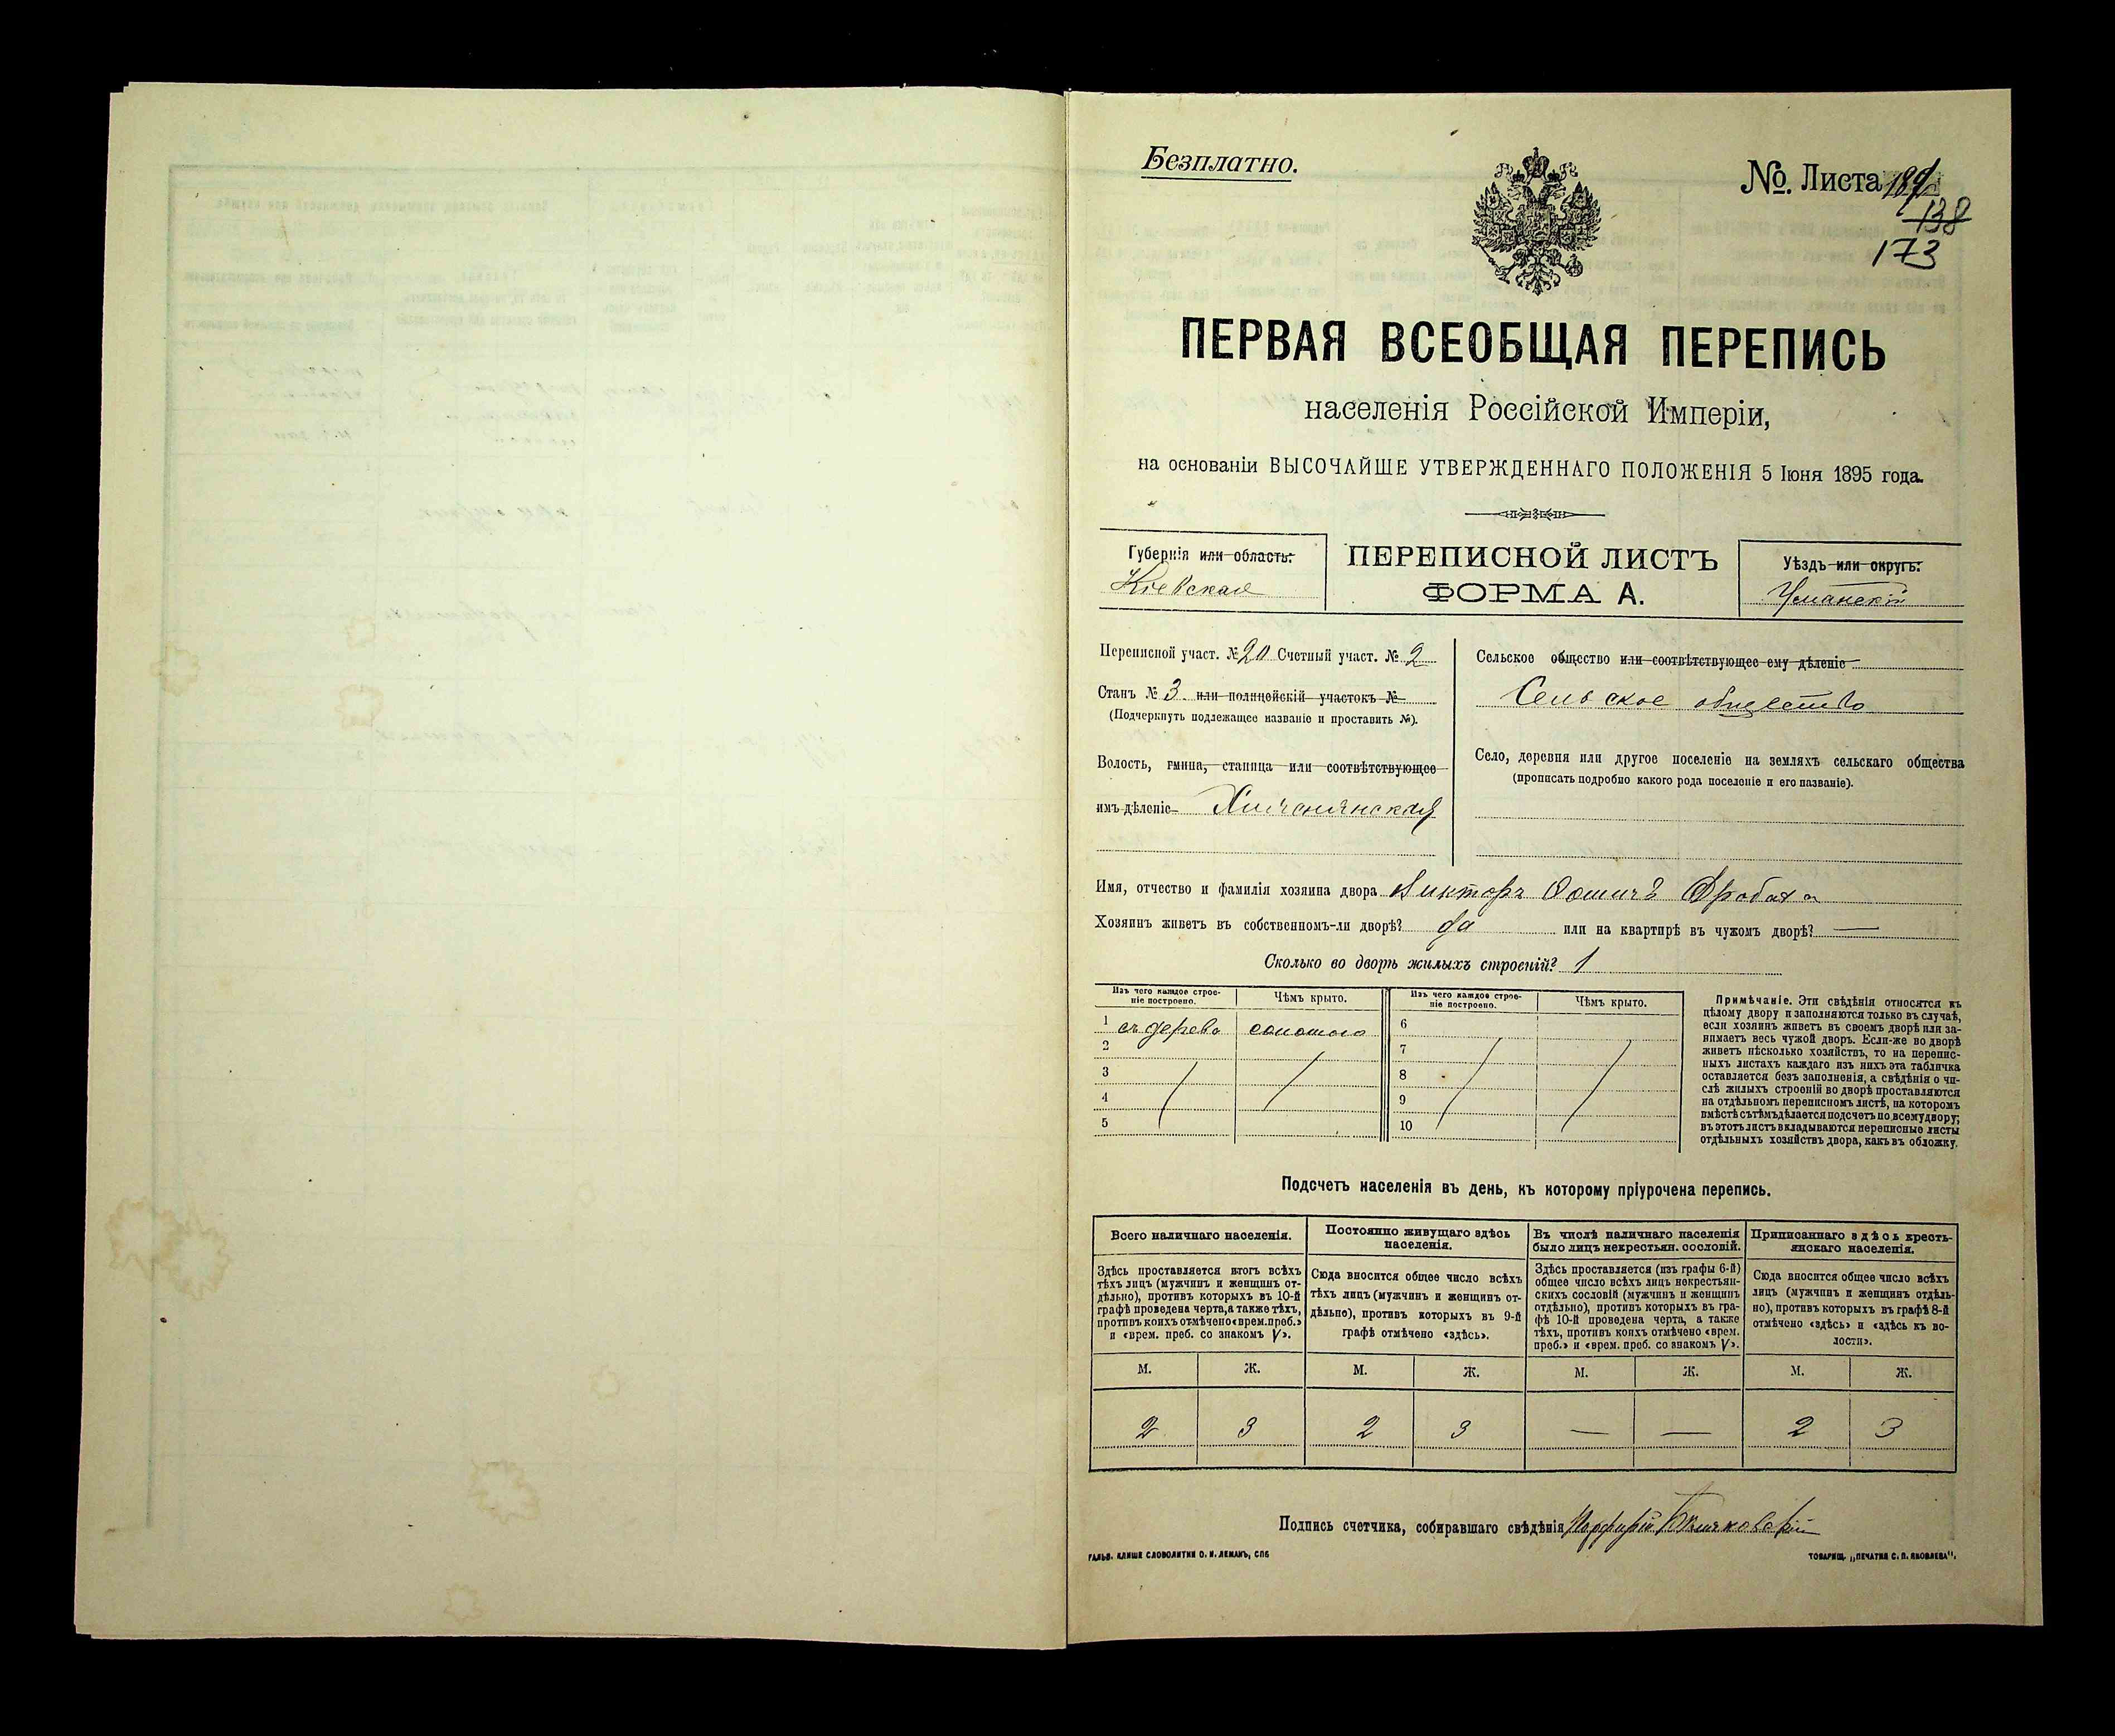 Безплатно.
№ Листа
138
173
ПЕРВАЯ ВСЕОБЩАЯ ПЕРЕПИСЬ
населенія Россійской Имперіи,
на основаніи ВЫСОЧАЙШЕ УТВЕРЖДЕННАГО ПОЛОЖЕНІЯ 5 Іюня 1895 года.
Губернія или область:
Кіевская
ПЕРЕПИСНОЙ ЛИСТЪ
ФОРМА А.
Уѣздъ или округъ:
Уманскій
Переписной участ. № 20 Счетный участ. № 2
Станъ № 3 или полицейскій участокъ №
(Подчеркнуть подлежащее названіе и проставить №).
Волость, гмина, станица или соотвѣтствующее
имъ дѣленіе
Сельское общество или соотвѣтствующее ему дѣленіе
Сельское общество
Село, деревня или другое поселеніе на земляхъ сельскаго общества
(прописать подробно какого рода поселеніе и его названіе).
Имя, отчество и фамилія хозяина двора Викторъ
Хозяинъ живетъ въ собственномъ-ли дворѣ? да или на квартирѣ въ чужомъ дворѣ? —
Сколько во дворѣ жилыхъ строеній? 1
Изъ чего каждое строе-
ніе построено.
Чѣмъ крыто.
Изъ чего каждое строе-
ніе построено.
Чѣмъ крыто.
1 съ дерева соломою 6
2 7
3 8
4 9
5 10
Примѣчаніе. Эти свѣдѣнія относятся къ
цѣлому двору и заполняются только въ случаѣ,
если хозяинъ живетъ въ своемъ дворѣ или за-
нимаетъ весь чужой дворъ. Если-же во дворѣ
живетъ нѣсколько хозяйствъ, то на перепис-
ныхъ листахъ каждаго изъ нихъ эта табличка
оставляется безъ заполненія, а свѣдѣнія о чи-
слѣ жилыхъ строеній во дворѣ проставляются
на отдѣльномъ переписномъ листѣ, на которомъ
вмѣстѣ съ тѣмъ дѣлается подсчетъ по всему двору;
въ этотъ листъ вкладываются переписные листы
отдѣльныхъ хозяйствъ двора, какъ въ обложку.
Подсчетъ населенія въ день, къ которому пріурочена перепись.
Всего наличнаго населенія.
Здѣсь проставляется итогъ всѣхъ
тѣхъ лицъ (мужчинъ и женщинъ от-
дѣльно), противъ которыхъ въ 10-й
графѣ проведена черта, а также тѣхъ,
противъ коихъ отмѣчено «врем. преб.»
и «врем. преб. со знакомъ V».
Постоянно живущаго здѣсь
населенія.
Сюда вносится общее число всѣхъ
тѣхъ лицъ (мужчинъ и женщинъ от-
дѣльно), противъ которыхъ въ 9-й
графѣ отмѣчено «здѣсь».
Въ числѣ наличнаго населенія
было лицъ некрестьян. сословій.
Здѣсь проставляется (изъ графы 6-й)
общее число всѣхъ лицъ некрестьян-
скихъ сословій (мужчинъ и женщинъ
отдѣльно), противъ которыхъ въ гра-
фѣ 10-й проведена черта, а также
тѣхъ, противъ коихъ отмѣчено «врем.
преб.» и «врем. преб. со знакомъ V».
Приписаннаго здѣсь кресть-
янскаго населенія.
Сюда вносится общее число всѣхъ
лицъ (мужчинъ и женщинъ отдѣль-
но), противъ которыхъ въ графѣ 8-й
отмѣчено «здѣсь» и «здѣсь къ во-
лости».
М. Ж. М. Ж. М. Ж. М. Ж.
2 3 2 3 — — 2 3
Подпись счетчика, собиравшаго свѣдѣнія Порфирій
ГАЛЬВ. КЛИШЕ СЛОВОЛИТНИ О. И. ЛЕМАНЪ, СПБ
ТОВАРИЩ. „ПЕЧАТНЯ С. П. ЯКОВЛЕВА".